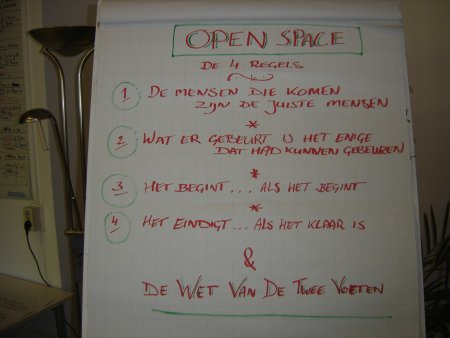 OPEN SPACE
DE 4 REGELS
1 DE MENSEN DIE KOMEN
ZIJN DE JUISTE MENSEN
*
2 WAT ER GEBEURT IS HET ENIGE
DAT HAD KUNNEN GEBEUREN
*
3 HET BEGINT... ALS HET BEGINT
*
4 HET EINDIGT... ALS HET KLAAR IS
&
DE WET VAN DE TWEE VOETEN